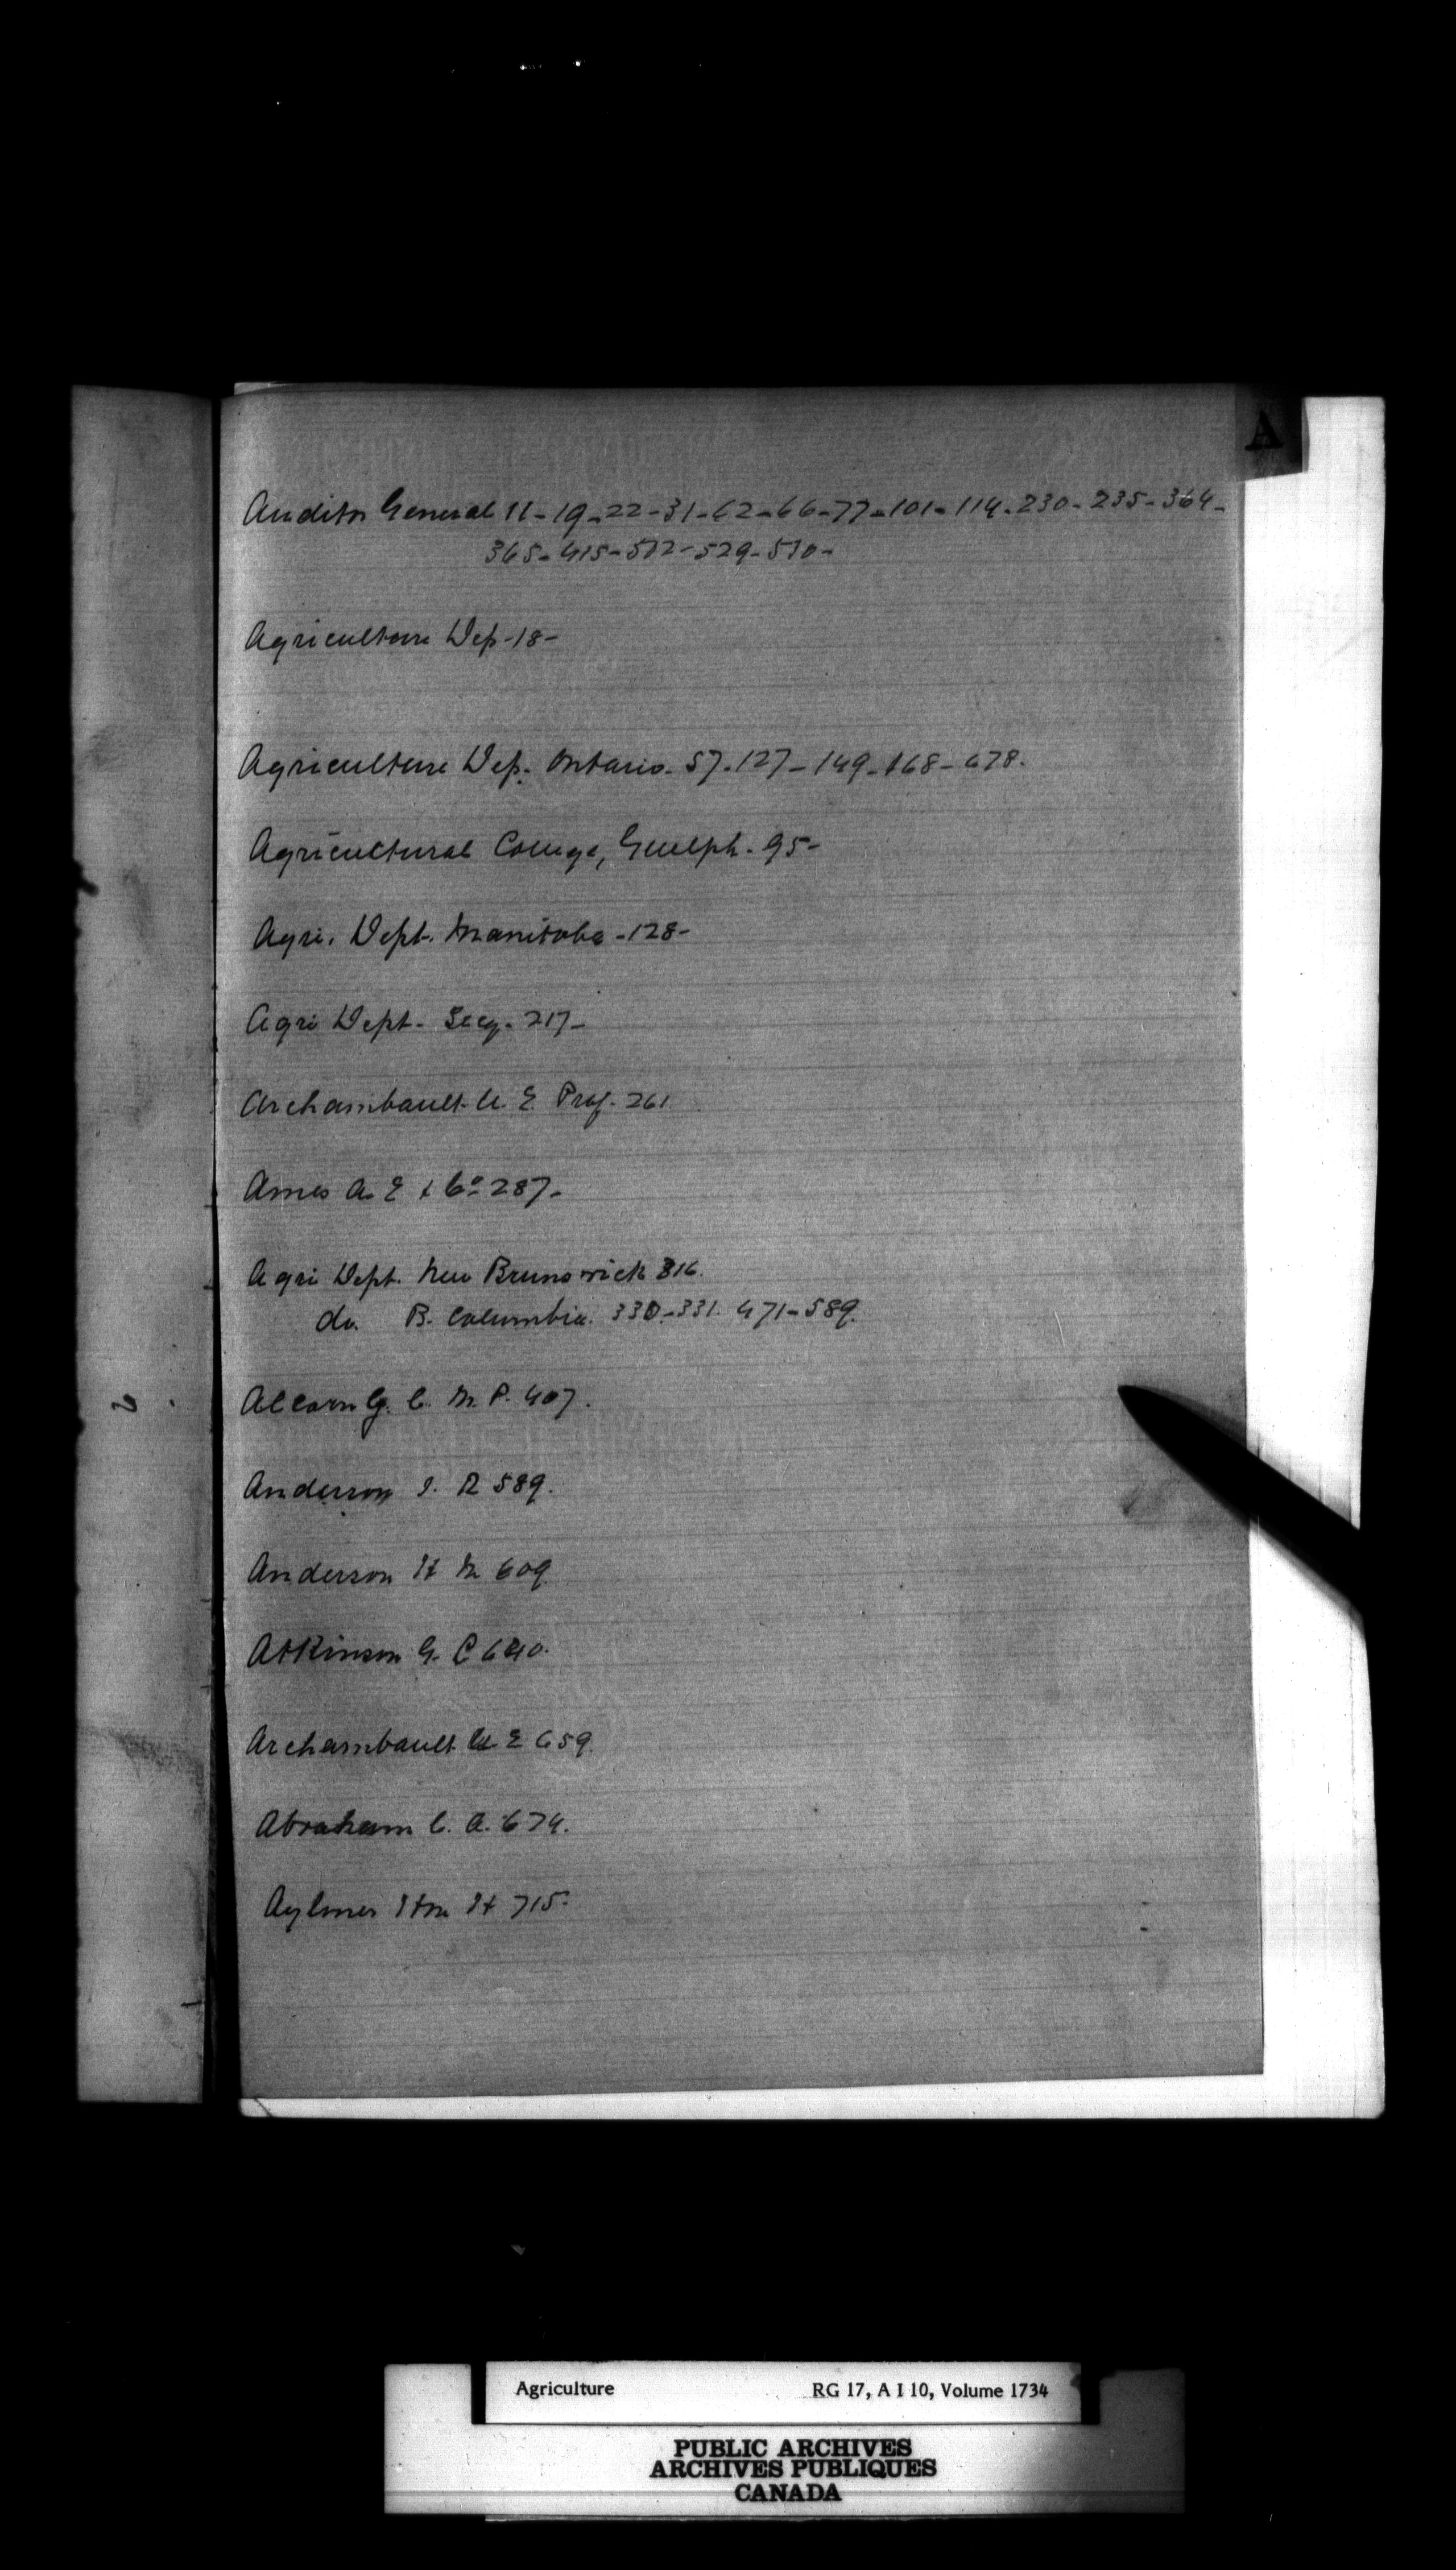 A
Auditor General 11-19-22-31-62-66-77-101-114-230-235-364-
365-415-512-529-530-
Agriculture Dep-18-
Agriculture Dep. Ontario. 57-127-149-168-678.
Agricultural College, Guelph. 95-
Agri. Dept. Manitoba -128-
Agri Dept. Secy. 217-
Archambault U. E. Prof. 261
Ames A. E & Co 287-
Agri Dept. New Brunswick 316.
do. B. Columbia. 330-331. 471-589.
Alcorn G. C. M. P. 407.
Anderson J. R 589.
Anderson H M 609
Atkinson G. C 640.
Archambault U E 659
Abraham C. A. 674.
Aylmer Hon H 715.
Agriculture RG 17, A I 10, Volume 1734
PUBLIC ARCHIVES
ARCHIVES PUBLIQUES
CANADA